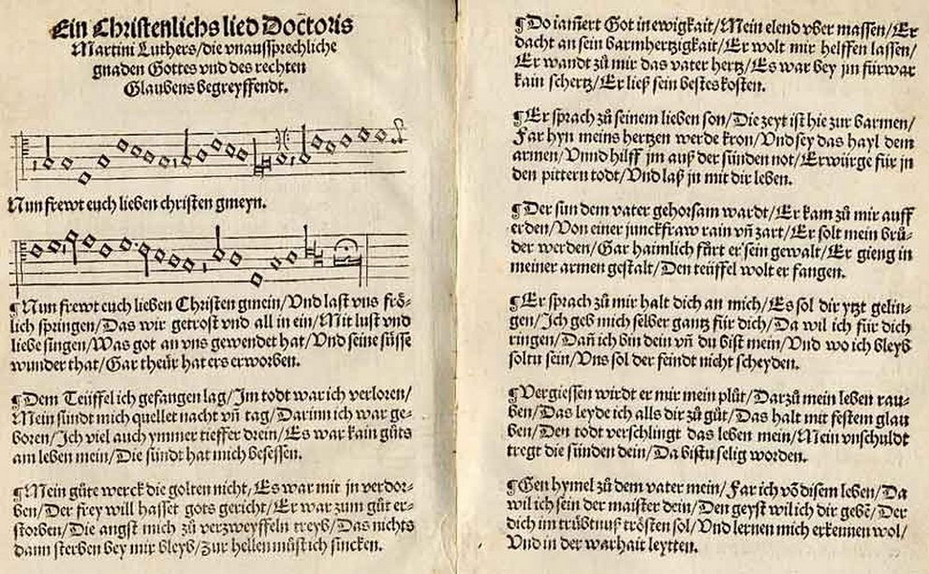 Ein Christenlichs lied Doctoris
Martini Luthers/die vnaussprechliche
gnaden Gottes vnd des rechten
Glaubens begreyffendt.
Nun frewt euch lieben christen gmeyn.
¶Nun frewt euch lieben Christen gmein/Vnd last vns frö-
lich springen/Das wir getrost vnd all in ein/Mit lust vnd
liebe singen/Was got an vns gewendet hat/Vnd seine süsse
wunder that/Gar theür hat ers erworben.
¶Dem Teüffel ich gefangen lag/Im todt war ich verloren/
Mein sündt mich quellet nacht vñ tag/Darinn ich war ge-
boren/Ich viel auch ymmer tieffer drein/Es war kain gůts
am leben mein/Die sündt hat mich besessen.
¶Mein gůte werck die golten nicht/Es war mit jn verdor-
ben/Der frey will hasset gots gericht/Er war zum gůt er-
storben/Die angst mich zů verzweyffeln treyb/Das nichts
dann sterben bey mir bleyb/Zur hellen můst ich sincken.
¶Do iamert Got in ewigkait/Mein elend vber massen/Er
dacht an sein barmhertzigkait/Er wolt mir helffen lassen/
Er wandt zů mir das vater hertz/Es war bey jm fürwar
kain schertz/Er ließ sein bestes kosten.
¶Er sprach zů seinem lieben son/Die zeyt ist hie zur barmen/
Far hyn meins hertzen werde kron/Vnd sey das hayl dem
armen/Vnnd hilff jm auß der sünden not/Erwürge für jn
den pittern todt/Vnd laß jn mit dir leben.
¶Der sun dem vater gehorsam wardt/Er kam zů mir auff
erden/Von einer junckfraw rain vñ zart/Er solt mein brů-
der werden/Gar haimlich fůrt er sein gewalt/Er gieng in
meiner armen gestalt/Den teüffel wolt er fangen.
¶Er sprach zů mir halt dich an mich/Es sol dir ytzt gelin-
gen/Ich geb mich selber gantz für dich/Da wil ich für dich
ringen/Dañ ich bin dein vñ du bist mein/Vnd wo ich bleyb
soltu sein/Vns sol der feindt nicht scheyden.
¶Vergiessen wirdt er mir mein plůt/Darzů mein leben rau-
ben/Das leyde ich alls dir zů gůt/Das halt mit festem glau
ben/Den todt verschlingt das leben mein/Mein vnschuldt
tregt die sünden dein/Da bistu selig worden.
¶Gen hymel zů dem vater mein/Far ich võ disem leben/Da
wil ich sein der maister dein/Den geyst wil ich dir gebẽ/Der
dich im trübtnuß trösten sol/Vnd lernen mich erkennen wol/
Vnd in der warhait leytten.